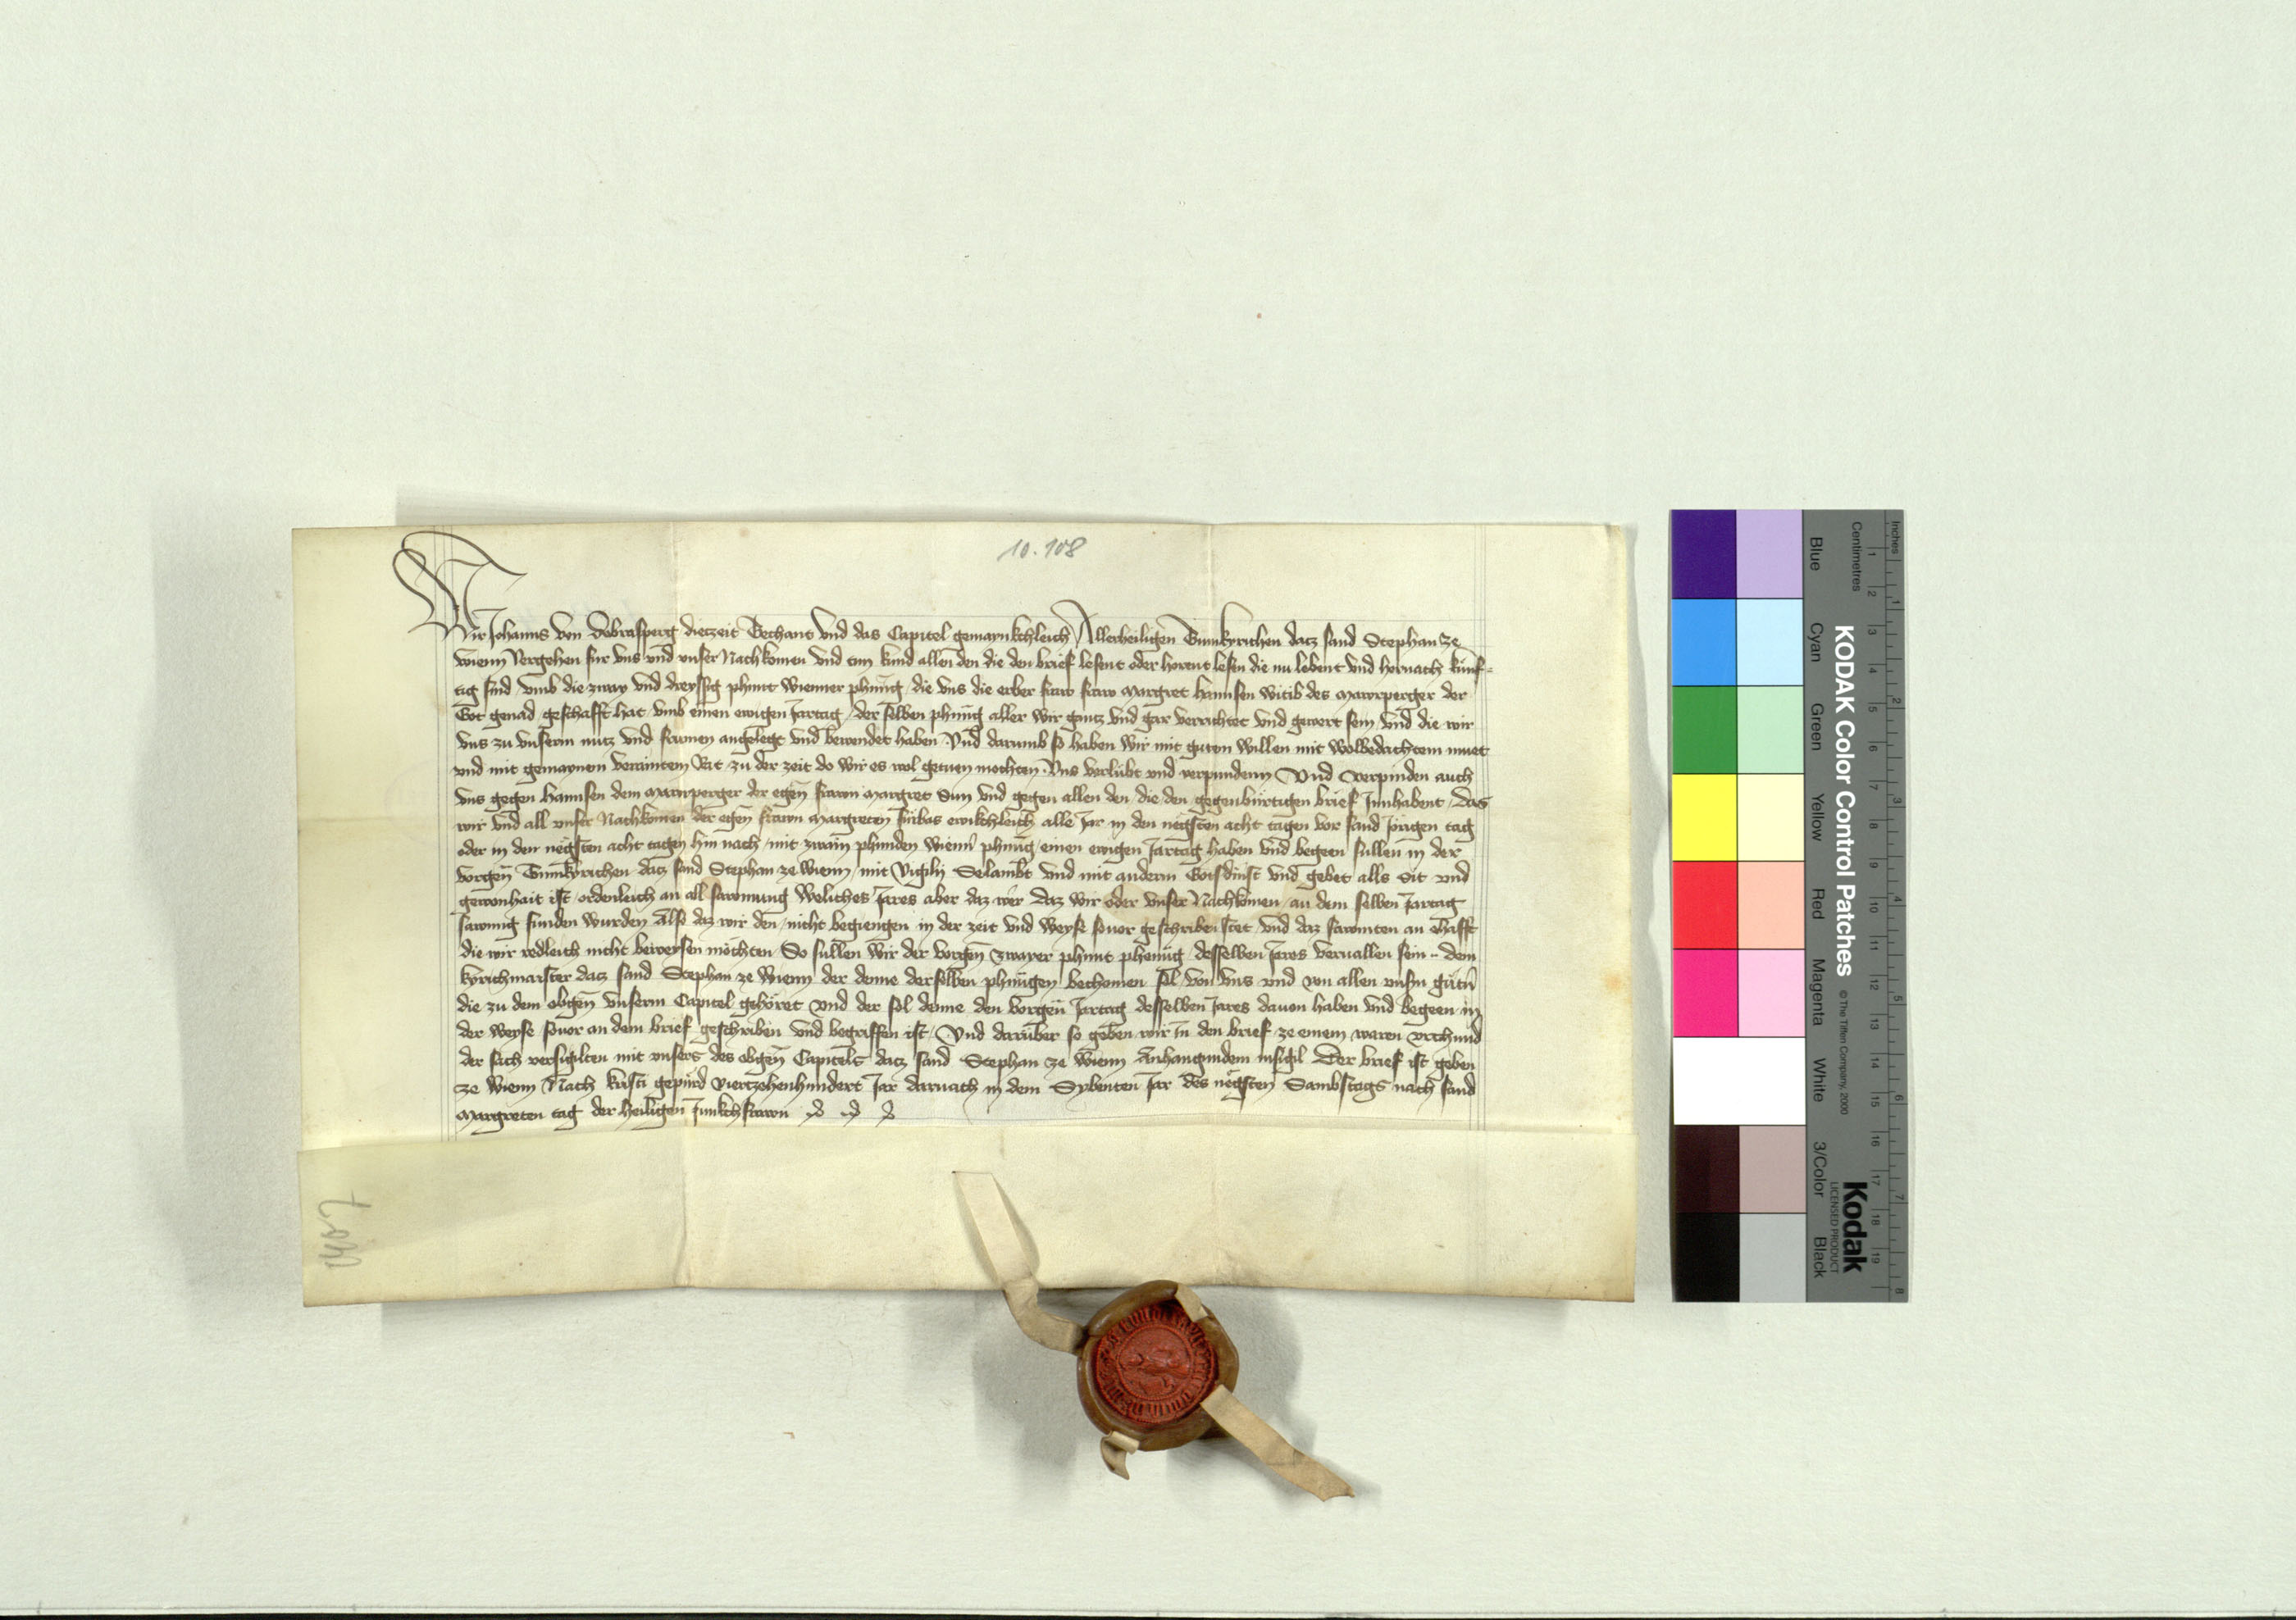 10.108
Wir Johanns von Dobrasperg diezeit Techant vnd das Capitel gemaynkchleich Allerheiligen Tumkyrichen datz sand Stephan ze
wienn Vergehen fur vns vnd vnser Nachkomen vnd tun kund allen den die den brief lesent oder horent lesen die nu lebent vnd hernach kunf-
tig sind vmb die zway vnd dreyssig phunt wienner phenig die vns die erber fraw fraw Margret Hannsen witib des Mawrperger der
Got genad geschafft hat vmb einen ewigen Jartag der selben phenig aller wir gantz vnd gar verrichtet vnd gewert sein vnd die wir
vns zu vnserm nutz vnd frumen angelegt vnd bewendet haben Vnd darumb so haben wir mit guten willen mit wolbedachtem muet
vnd mit gemaynem veraintem Rat zu der zeit do wir es wol getuen mochten Vns verlubt vnd verpunden Vnd verpinden auch
vns gegen Hannsen dem Mawrperger der egen frawn Margret Sun vnd gegen allen den die den gegenburtigen brief Innhabent das
wir vnd all vnser Nachkomen der egen frawn Margreten furbas ewikchleich alle Jar in den negsten acht tagen vor sand Jorigen tag
oder in den negsten acht tagen hin nach mit zwain phunden wienn phenig einen ewigen Jartag haben vnd begeen sullen in der
vorgen Tumkyrichen datz sand Stephan ze wienn mit Vigily Selambt vnd mit anderm Gotsdinst vnd gebet alls Sit vnd
gewonhait ist ordenleich an all sawmung Welches Jares aber daz wer daz wir oder vnser Nachkomen an dem selben Jartag
sawmig funden wurden Also daz wir den nicht begiengen in der zeit vnd weyse souor geschriben stet vnd daz sawmten an ehafft
die wir redleich nicht beweysen mochten So sullen wir der vorgen zwayer phunt phennig desselben Jares veruallen sein dem
kyrichmaister datz sand Stephan ze Wienn der denne derselben phenigen bechomen sol von vns vnd von allen vnsn gutn
die zu dem obgen vnserm Capitel gehoret vnd der sol denne den vorgen Jartag desselben Jares dauon haben vnd begeen in
der weyse souor an dem brief geschriben vnd begriffen ist Vnd daruber so geben wir in den brief ze einem waren vrchund
der sach versigilten mit vnsers des obgen Capitels datz sand Stephan ze wienn Anhangundem insigil Der brief ist geben
ze wienn Nach kristi gepurd vierzehenhundert Jar darnach in dem Sybenten Jar des negsten Sambstags nach sand
Margreten tag der heiligen Junkchfrawn
1407
KODAK Color Control Patches
© The Tiffen Company, 2000
Kodak
LICENSED PRODUCT
Inches
Centimetres
Blue
Cyan
Green
Yellow
Red
Magenta
White
3/Color
Black